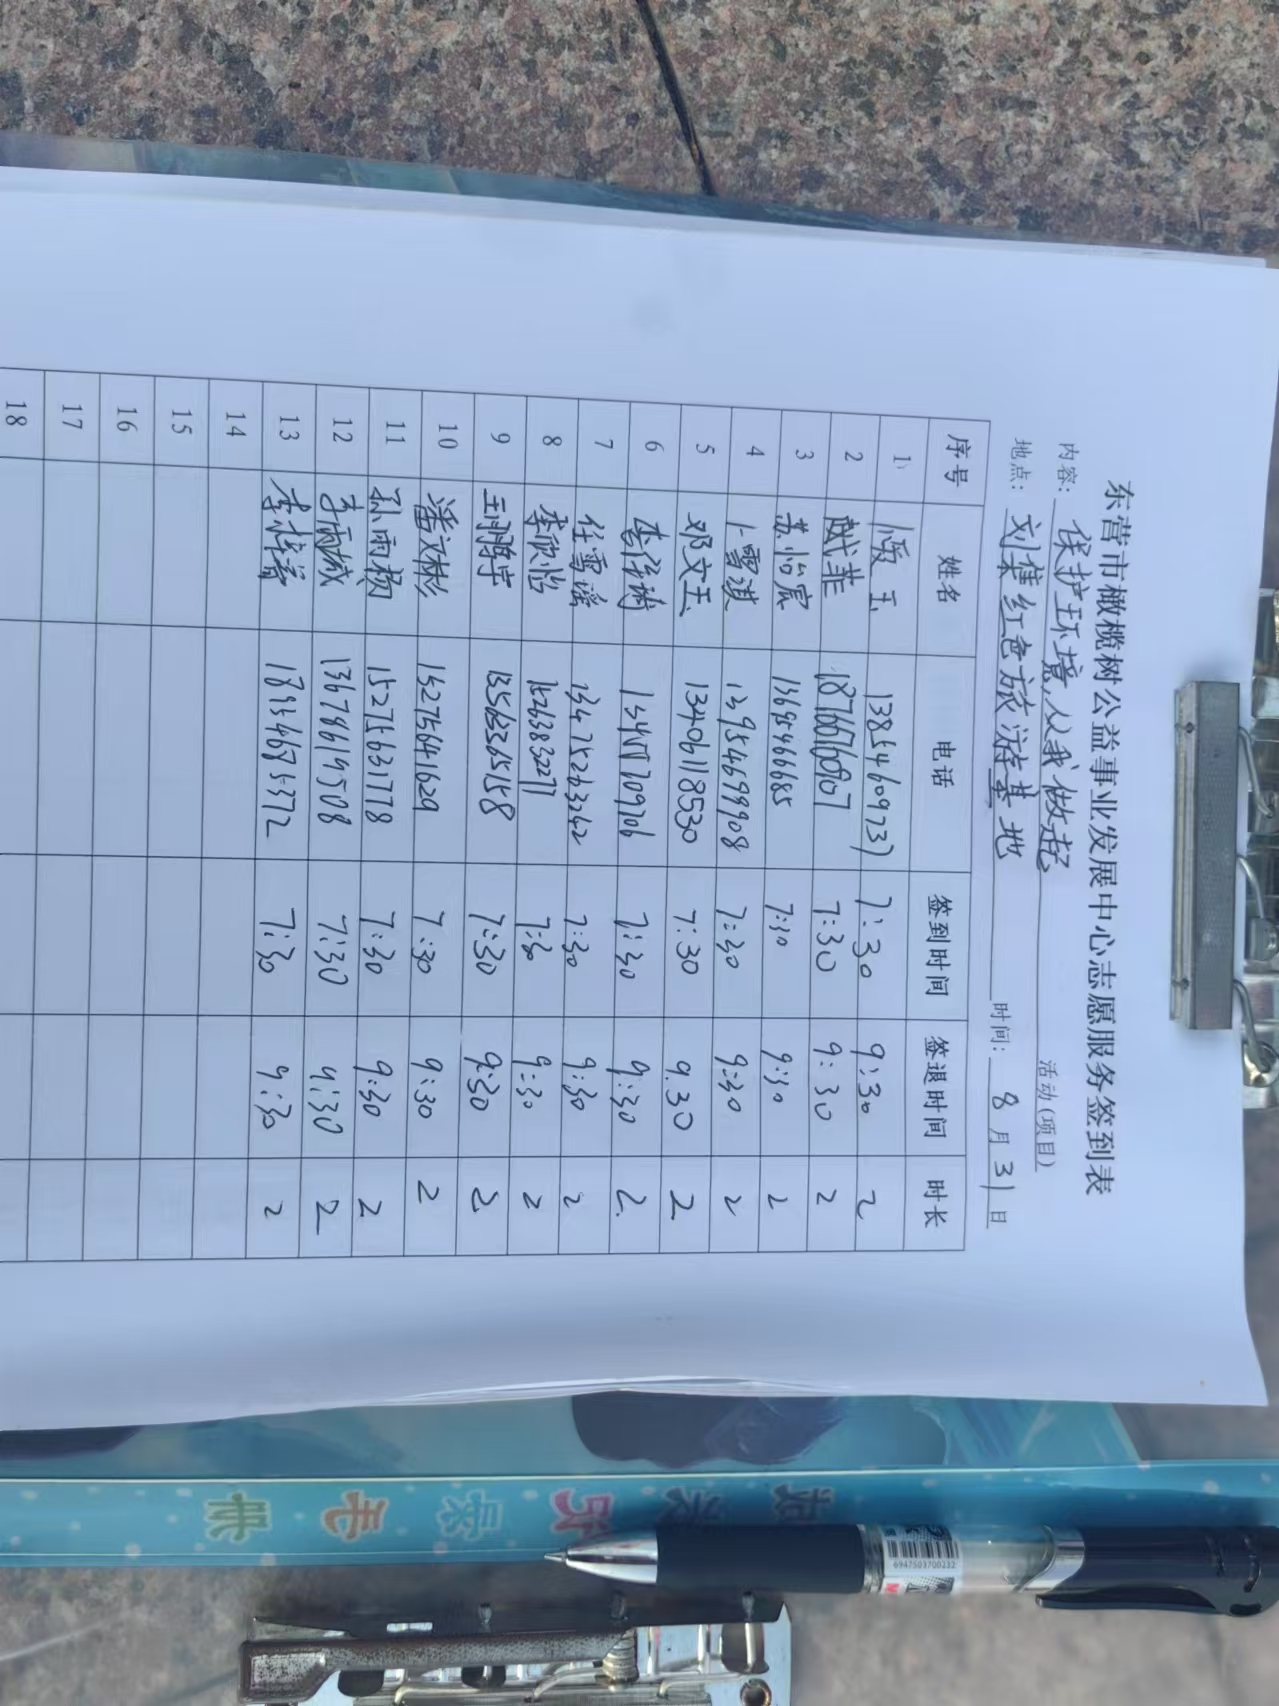 东营市橄榄树公益事业发展中心志愿服务签到表
内容: 保护环境,从我做起 活动(项目)
地点: 刘集红色旅游基地 时间: 8月31日
序号 姓名 电话 签到时间 签退时间 时长
1 玉 7:30 9:30 2
2 菲 7:30 9:30 2
3 苏怡宸 13695466685 7:30 9:30 2
4 卜雪淇 13954699908 7:30 9:30 2
5 邓文玉 13406118530 7:30 9.30 2
6 李 7:30 9:30 2
7 任雪瑶 13475263242 7:30 9:30 2
8 李欣怡 15263832271 7:30 9:30 2
9 王鹏宇 13563265158 7:30 9:30 2
10 潘文彬 15275641629 7:30 9:30 2
11 孙雨杨 15275631778 7:30 9:30 2
12 李雨城 13676619508 7:30 9:30 2
13 李梓睿 7:30 9:30 2
14
15
16
17
18
6947503700232